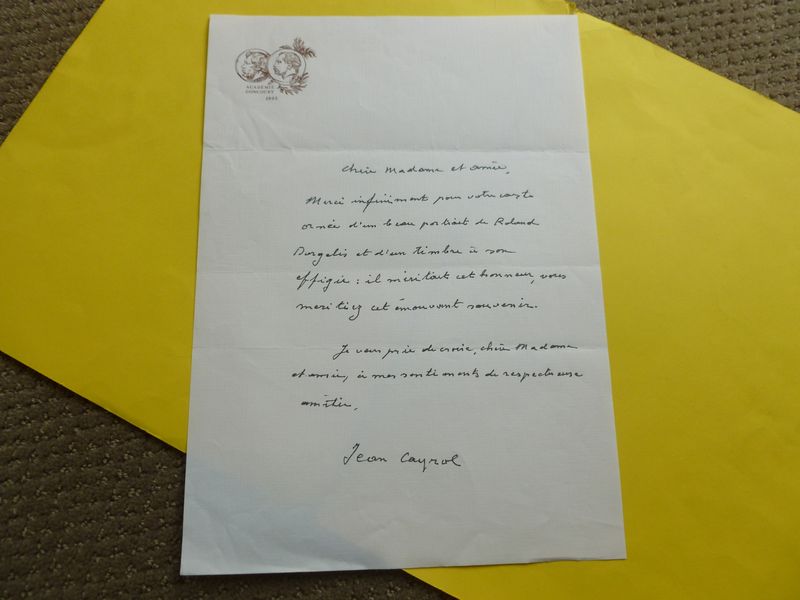 ACADÉMIE
GONCOURT
1903
Chère Madame et amie,
Merci infiniment pour votre carte
ornée d'un beau portrait de Roland
Dorgelès et d'un timbre à son
effigie : il méritait cet honneur, vous
méritiez cet émouvant souvenir.
Je vous prie de croire, chère Madame
et amie, à mes sentiments de respectueuse
amitié.
Jean Cayrol